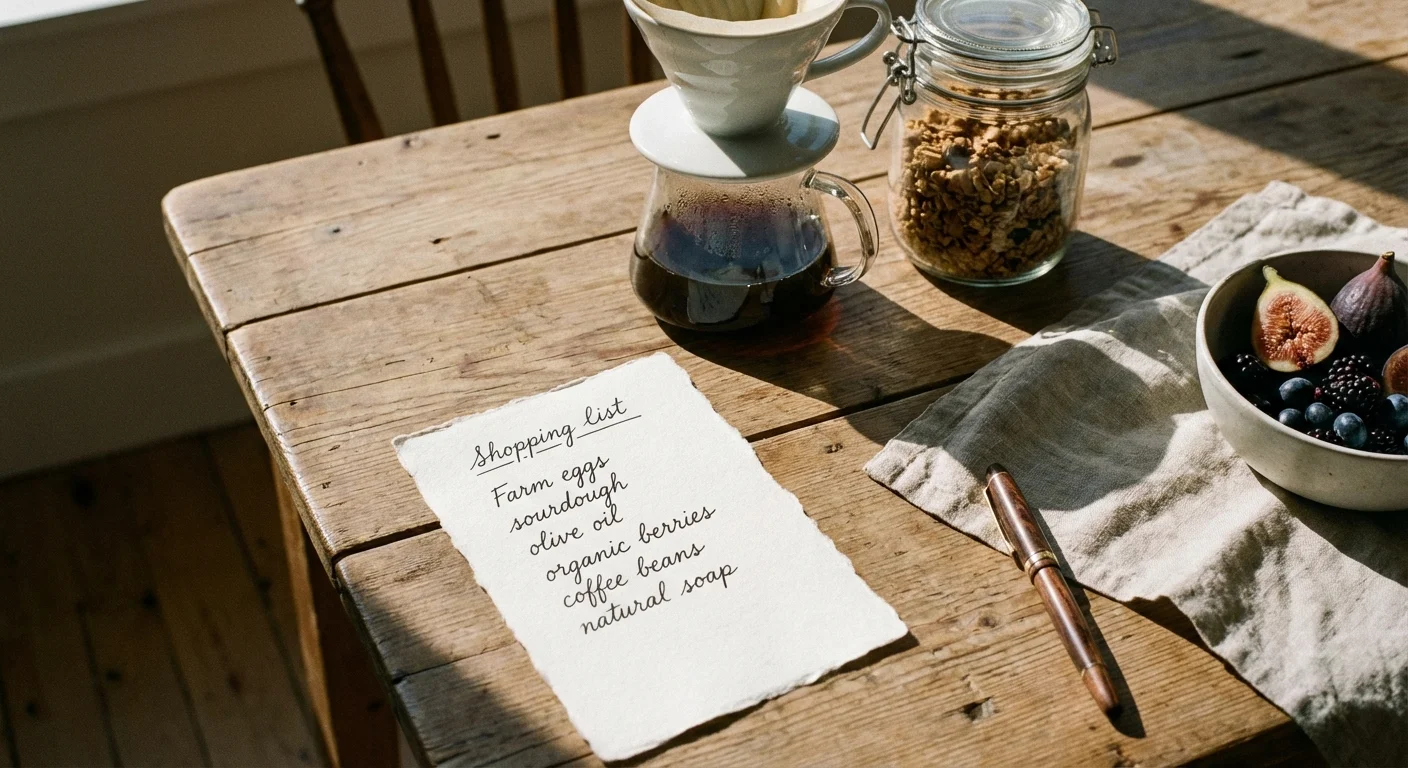 Shopping list
Farm eggs
sourdough
olive oil
organic berries
coffee beans
natural soap